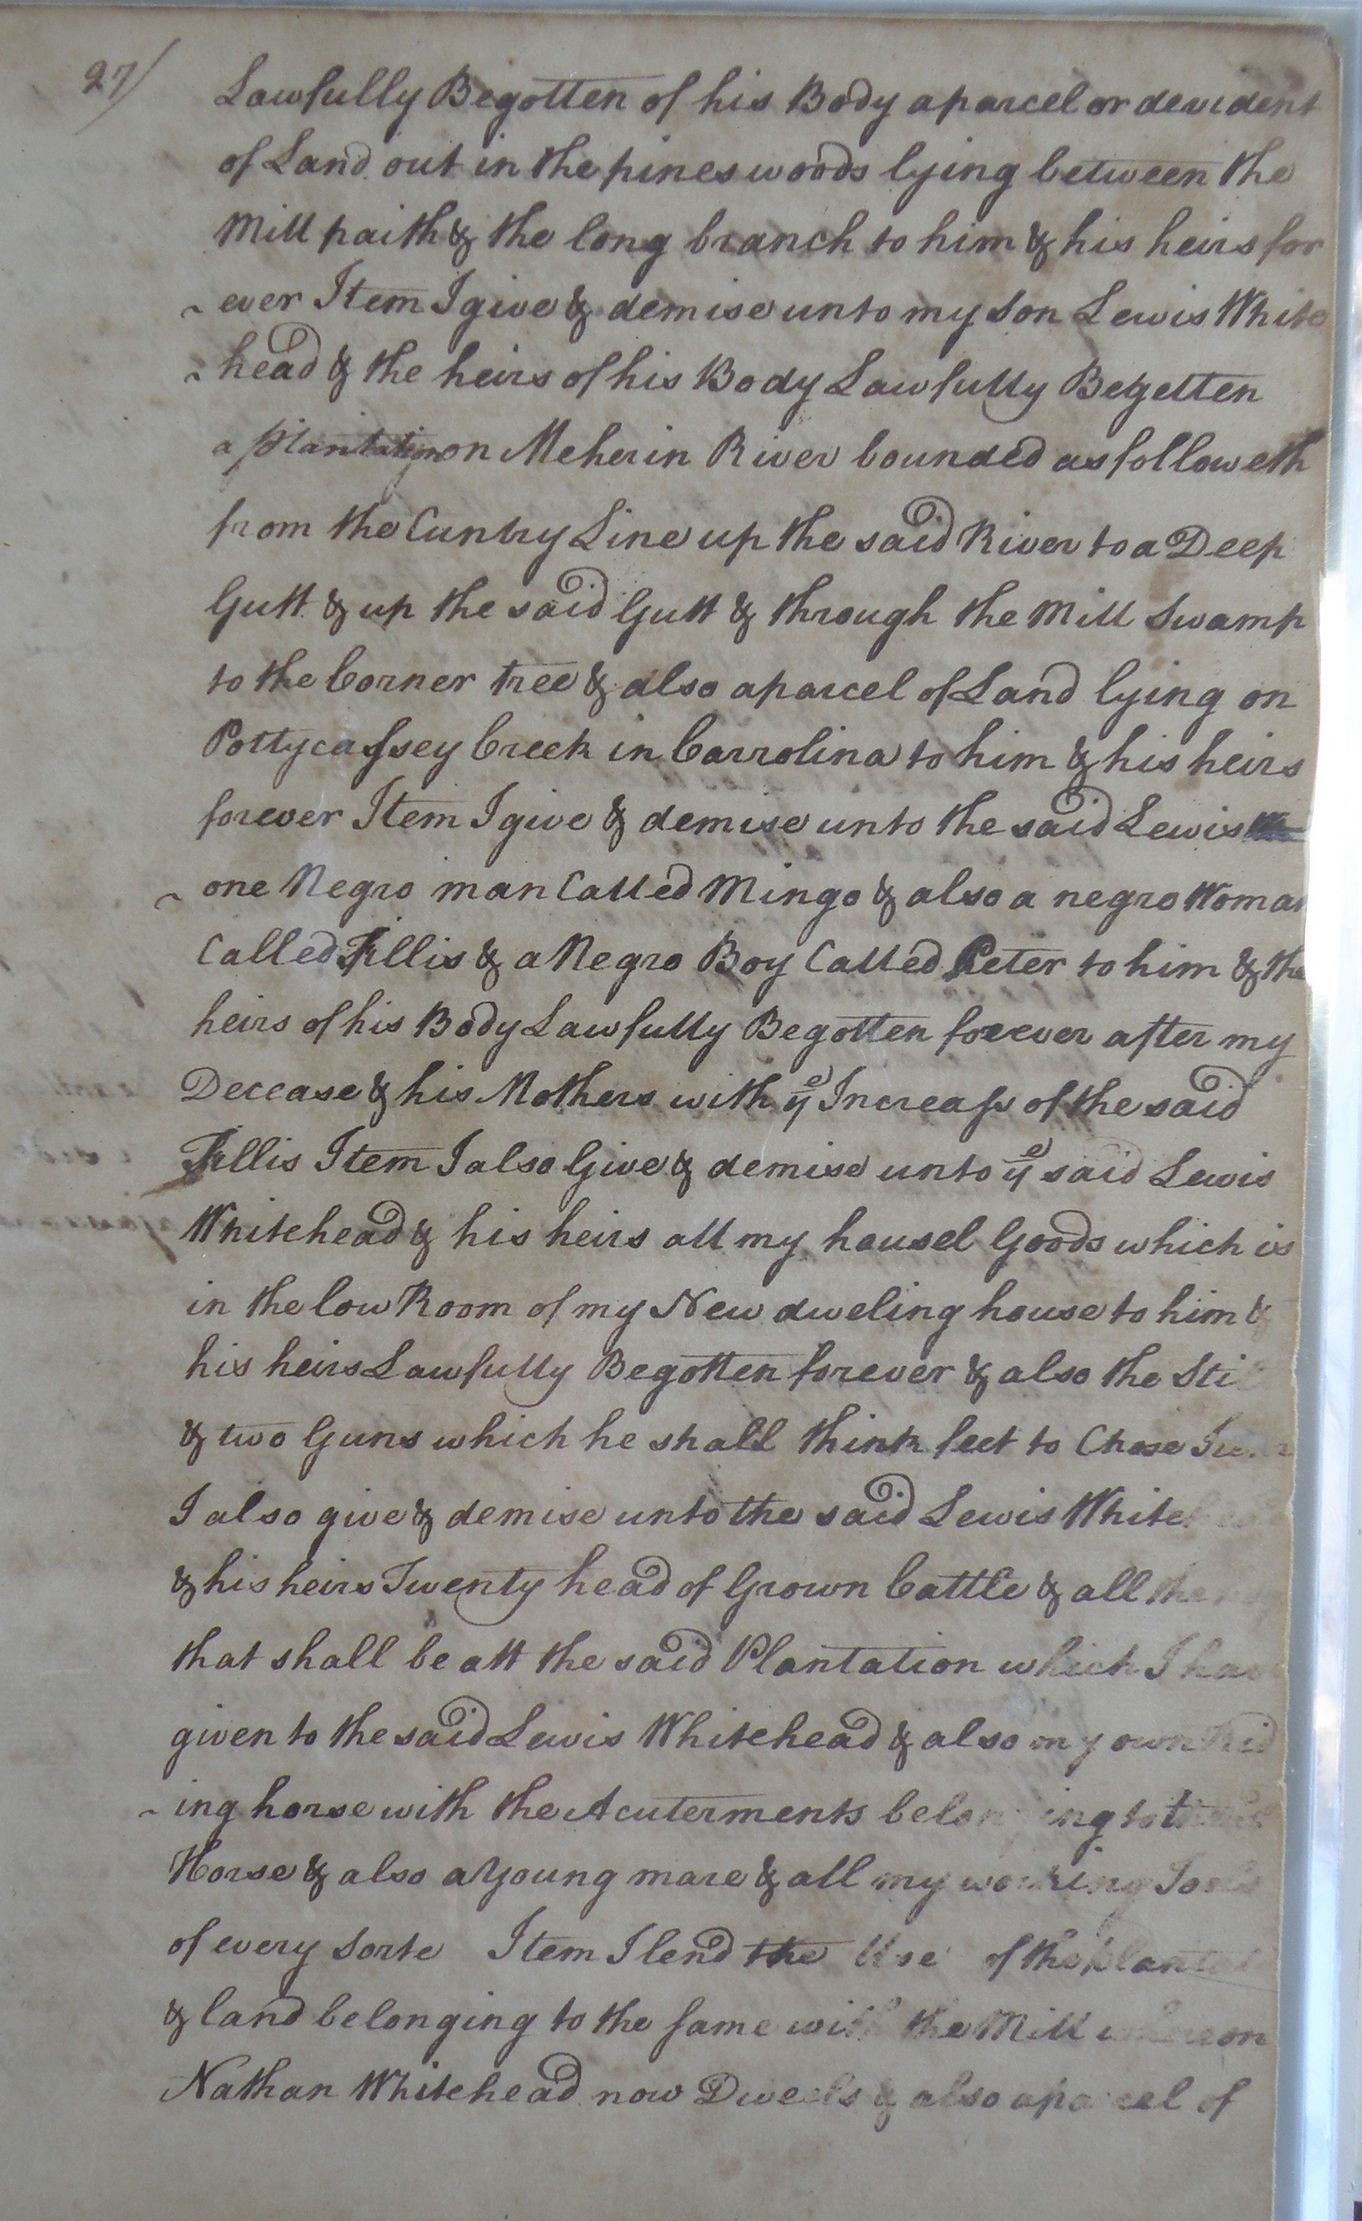 27/
Lawfully Begotten of his Body a parcel or devident
of Land out in the pines woods lying between the
Mill paith & the long branch to him & his heirs for
~ ever Item I give & demise unto my Son Lewis White
~ head & the heirs of his Body Lawfully Begetten
a plantation on Meherin River bounded as followeth
from the Cuntry Line up the said River to a Deep
Gutt & up the said Gutt & through the Mill Swamp
to the Corner tree & also a parcel of Land lying on
Pottycassey Creek in Carrolina to him & his heirs
forever Item I give & demise unto the said Lewis
~ one Negro man Called Mingo & also a negro Woman
Called Fillis & a Negro Boy Called Peter to him & the
heirs of his Body Lawfully Begotten forever after my
Decease & his Mothers with ye Increase of the said
Fillis Item I also Give & demise unto ye said Lewis
Whitehead & his heirs all my housel Goods which is
in the low Room of my New dweling house to him &
his heirs Lawfully Begotten forever & also the Sti
& two Guns which he shall think feet to Chose
I also give & demise unto the said Lewis White
& his heirs Twenty head of Grown Cattle & all the
that shall be att the said Plantation which I have
given to the said Lewis Whitehead & also my own Rid
~ ing horse with the Acuterments belonging to
Horse & also a Young mare & all my working Tools
of every Sorte Item I lend the Use of the
& land belonging to the same with the Mill whereon
Nathan Whitehead now Dweels & also a parcel of